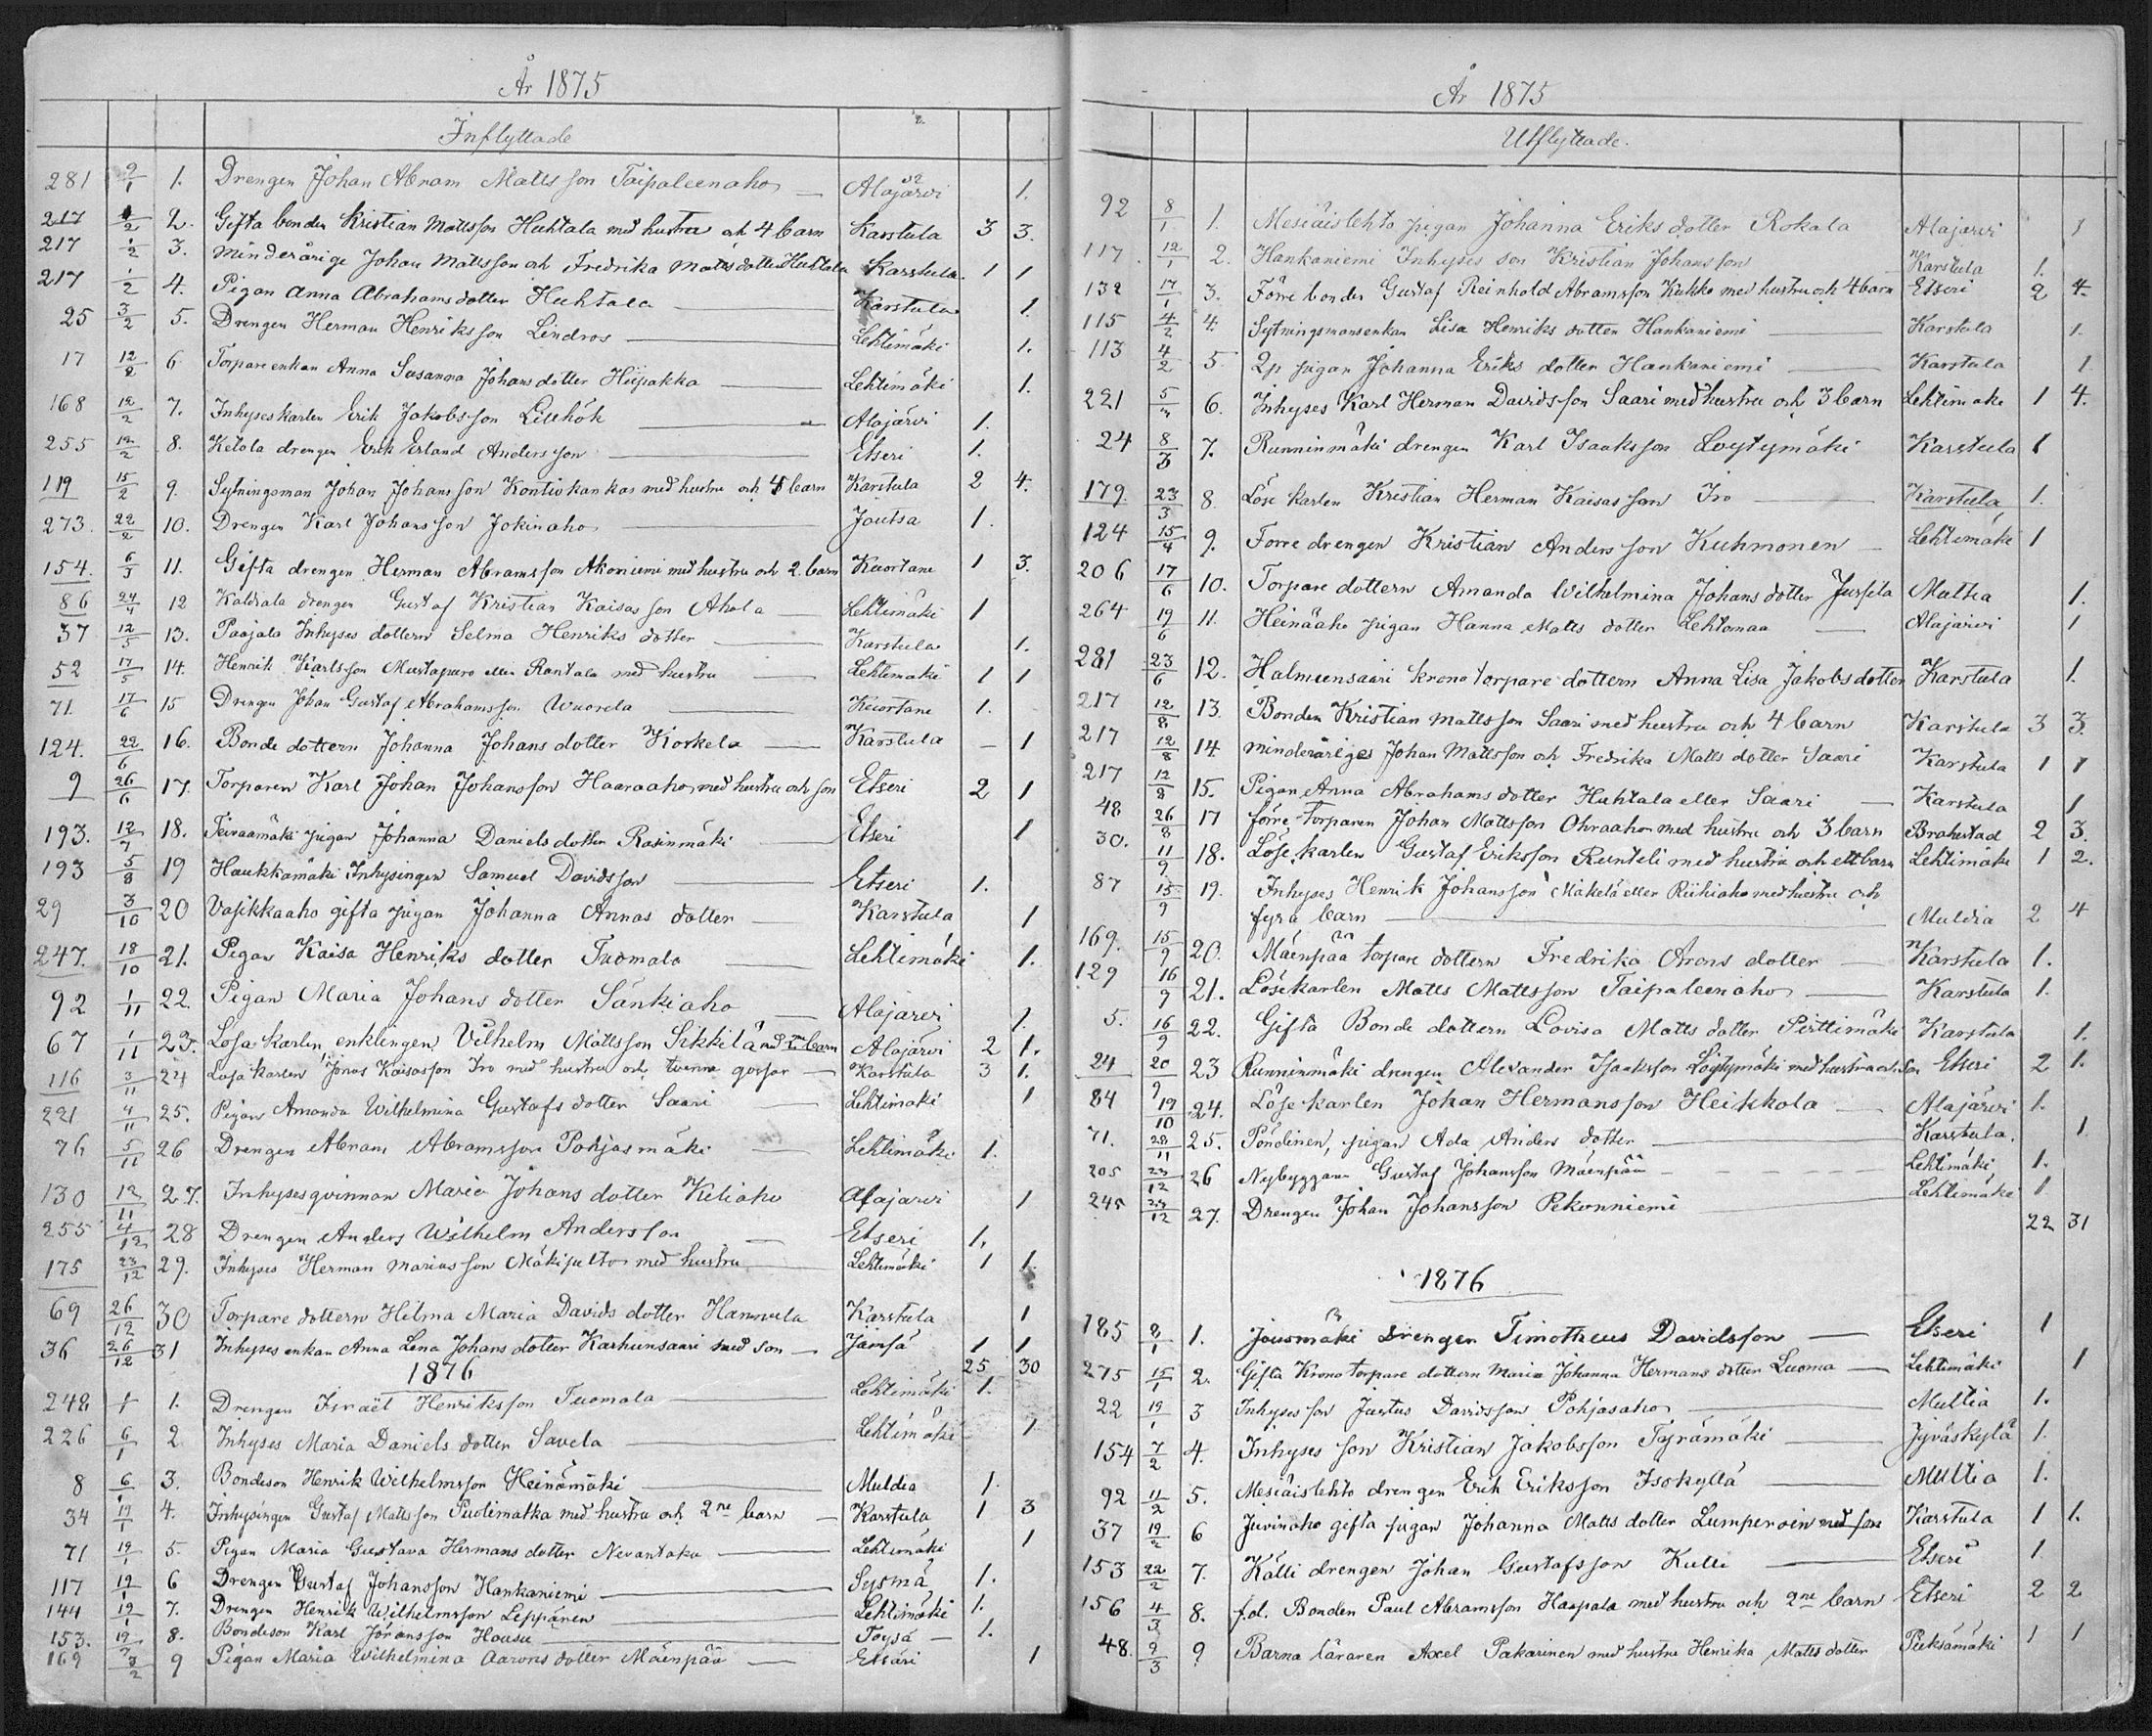 År 1875
Inflyttade
281 2/1 1. Drengen Johan Abram Mattsson Taipaleenaho — Alajärvi 1.
217 1/2 2. Gifta bonden Kristian Mattsson Huhtala med hustru och 4 barn Karstula 3 3.
217 1/2 3. Minderårige Johan Mattsson och Fredrika Mattsdotter Huhtala Karstula 1 1
217 1/2 4. Pigan Anna Abrahamsdotter Huhtala — Karstula 1.
25 3/2 5. Drengen Herman Henriksson Lindros — Lehtimäki 1.
17 12/2 6 Torpare enkan Anna Susanna Johansdotter Hiipakka — Lehtimäki 1.
168 12/2 7. Inhyseskarlen Erik Jakobsson Lillhök — Alajärvi 1.
255 12/2 8. Ketola drengen Erik Erland Andersson — Etseri 1.
119 15/2 9. Sytningsman Johan Johansson Kontiokankas med hustru och 4 barn Karstula 2 4.
273. 22/2 10. Drengen Karl Johansson Jokinaho — Joutsa 1.
154. 6/3 11. Gifta drengen Herman Abramsson Akoniemi med hustru och 2. barn Kuortane 1 3.
86 24/4 12 drengen Gustaf Kristian Kaisasson Ahola — Lehtimäki 1
37 12/5 13. Paajala Inhyses dottern Selma Henriks dotter — Karstula 1.
52 17/5 14. Henrik Karlsson Mustapuro eller Rantala med hustru — Lehtimäki 1 1
71. 17/6 15 Drengen Johan Gustaf Abrahamsson Wuorela — Kuortane 1.
124. 22/6 16. Bonde dottern Johanna Johans dotter Koskela — Karstula – 1
9 26/6 17. Torparen Karl Johan Johansson Haaraaho med hustru och son Etseri 2 1
193. 12/7 18. Teiraamäki pigan Johanna Danielsdotter Rasinmäki — Etseri 1
193 5/8 19 Haukkamäki Inhysingen Samuel Davidsson — Etseri 1.
29 3/10 20 Vasikkaaho gifta pigan Johanna Annas dotter — Karstula 1
247. 18/10 21. Pigan Kaisa Henriks dotter Tuomala — Lehtimäki 1.
92 1/11 22. Pigan Maria Johans dotter Sänkiaho — Alajärvi 1.
67 1/11 23. Lösa karlen, enklingen Vilhelm Mattsson Sikkilä med barn Alajärvi 2 1.
116 3/11 24 Lösa karlen Jonas Kaisasson Iro med hustru och tvenne gossar — Karstula 3 1.
221 4/11 25. Pigan Amanda Wilhelmina Gustafs dotter Saari — Lehtimäki 1
76 5/11 26 Drengen Abram Abramsson Pohjasmäki — Lehtimäki 1.
130 12/11 27. Inhysesqvinnan Maria Johans dotter Kiliaho Alajärvi 1
255 4/12 28 Drengen Anders Wilhelm Andersson — Etseri 1.
175 23/12 29. Inhyses Herman Mariasson Mäkipelto med hustru Lehtimäki 1 1.
69 26/12 30 Torpare dottern Hilma Maria Davids dotter Hannula Karstula 1
36 26/12 31 Inhyses enkan Anna Lena Johans dotter Karhunsaari med son — Jämsä 1 1
1876 25 30
248 1/1 1. Drengen Israel Henriksson Tuomala — Lehtimäki 1.
226 6/1 2 Inhyses Maria Daniels dotter Savela — Lehtimäki 1
8 6/1 3. Bondeson Henrik Wilhelmsson Heinämäki — Muldia 1.
34 17/1 4. Inhysingen Gustaf Mattsson Puolimatka med hustru och 2ne barn — Karstula 1 3
71 19/1 5. Pigan Maria Gustava Hermans dotter Nevantaka — Lehtimäki 1
117 19/1 6 Drengen Gustaf Johansson Hankaniemi — Sysmä 1.
144 19/1 7. Drengen Henrik Wilhelmsson Leppänen — Lehtimäki 1.
153. 19/1 8. Bondeson Karl Göransson Housu — Töysä — 1.
169 9 Pigan Maria Wilhelmina Aarons dotter Mäenpää — Etsäri 1
År 1875
Utflyttade.
92 8/1 1. Mesiäislehto pigan Johanna Eriks dotter Rokala Alajärvi 1
117. 12/1 2. Hankaniemi Inhyses son Kristian Johansson Karstula 1.
132 17/1 3. Förre bonden Gustaf Reinhold Abramsson Kukko med hustru och 4 barn Etseri 2 4.
115 4/2 4. Sytningsmansenkan Lisa Henriks dotter Hankaniemi — Karstula 1.
113 4/2 5. pigan Johanna Eriks dotter Hankaniemi — Karstula 1
221 5/3 6. Inhyses Karl Herman Davidsson Saari med hustru och 3 barn Lehtimäki 1 4.
24 8/3 7. Runninmäki drengen Karl Isaaksson Loytymäki Karstula 1
179. 23/3 8. Löse karlen Kristian Herman Kaisasson Iro — Karstula 1.
124 15/4 9. Förre drengen Kristian Andersson Kuhmonen — Lehtimäki 1
206 17/6 10. Torpare dottern Amanda Wilhelmina Johans dotter Jussila Multia 1.
264 19/6 11. Heinäaho pigan Hanna Matts dotter Lehtomaa — Alajärvi 1
281 23/6 12. Halmeensaari krono torpare dottern Anna Lisa Jakobsdotter Karstula 1.
217 12/8 13. Bonden Kristian Mattsson Saari med hustru och 4 barn Karstula 3 3.
217 12/8 14. minderåriges Johan Mattsson och Fredrika Matts dotter Saari Karstula 1 1
217 12/8 15. Pigan Anna Abrahams dotter Huhtala eller Saari — Karstula 1
48 26/8 17 förre torparen Johan Mattsson Ohraaho med hustru och 3 barn Brahestad 2 3.
30. 11/9 18. Löse karlen Gustaf Eriksson Runteli med hustru och ett barn Lehtimäki 1 2.
87 15/9 19. Inhyses Henrik Johansson Mäkelä eller Riihiaho med hustru och
fyra barn — Muldia 2 4
169. 15/9 20. Mäenpää torpare dottern Fredrika Arons dotter — Karstula 1.
129 16/9 21. Lösekarlen Matts Mattsson Taipaleenaho — Karstula 1.
5. 16/9 22. Gifta Bonde dottern Lovisa Matts dotter Pirttimäki Karstula 1.
24 20/9 23 Runninmäki drengen Alexander Isaaksson Löytymäki med hustru och son Etseri 2 1.
84 19/10 24. Löse karlen Johan Hermansson Heikkola — Alajärvi 1.
71. 28/11 25. Pöndinen, pigan Ada Anders dotter — Karstula. 1
205 23/12 26 Nybyggaren Gustaf Johansson Mäenpää — Lehtimäki 1.
245 27. Drengen Johan Johansson Pekonniemi — Lehtimäki 1
22 31
1876
185 8/1 1. Jousmäki Drengen Timotheus Davidsson — Etseri 1
275 15/1 2. Gifta Krono torpare dottern Maria Johanna Hermans dotter Luoma — Lehtimäki 1
22 19/1 3 Inhyses son Justus Davidsson Pohjasaho — Multia 1.
154 7/2 4. Inhyses son Kristian Jakobsson Tyrämäki — Jyväskylä 1.
92 11/2 5. Mesiäislehto drengen Erik Eriksson Isokyllä — Multia 1.
37 19/2 6 gifta pigan Johanna Matts dotter Lumperoin med son Karstula 1 1.
153 22/2 7. Källi drengen Johan Gustafsson Kulli — Etseri 1
156 4/3 8. f.d. Bonden Paul Abramsson Haapala med hustru och 2ne barn Etseri 2 2
48. 9/3 9 Barna läraren Axel Pakarinen med hustru Henrika Matts dotter Pieksämäki 1 1